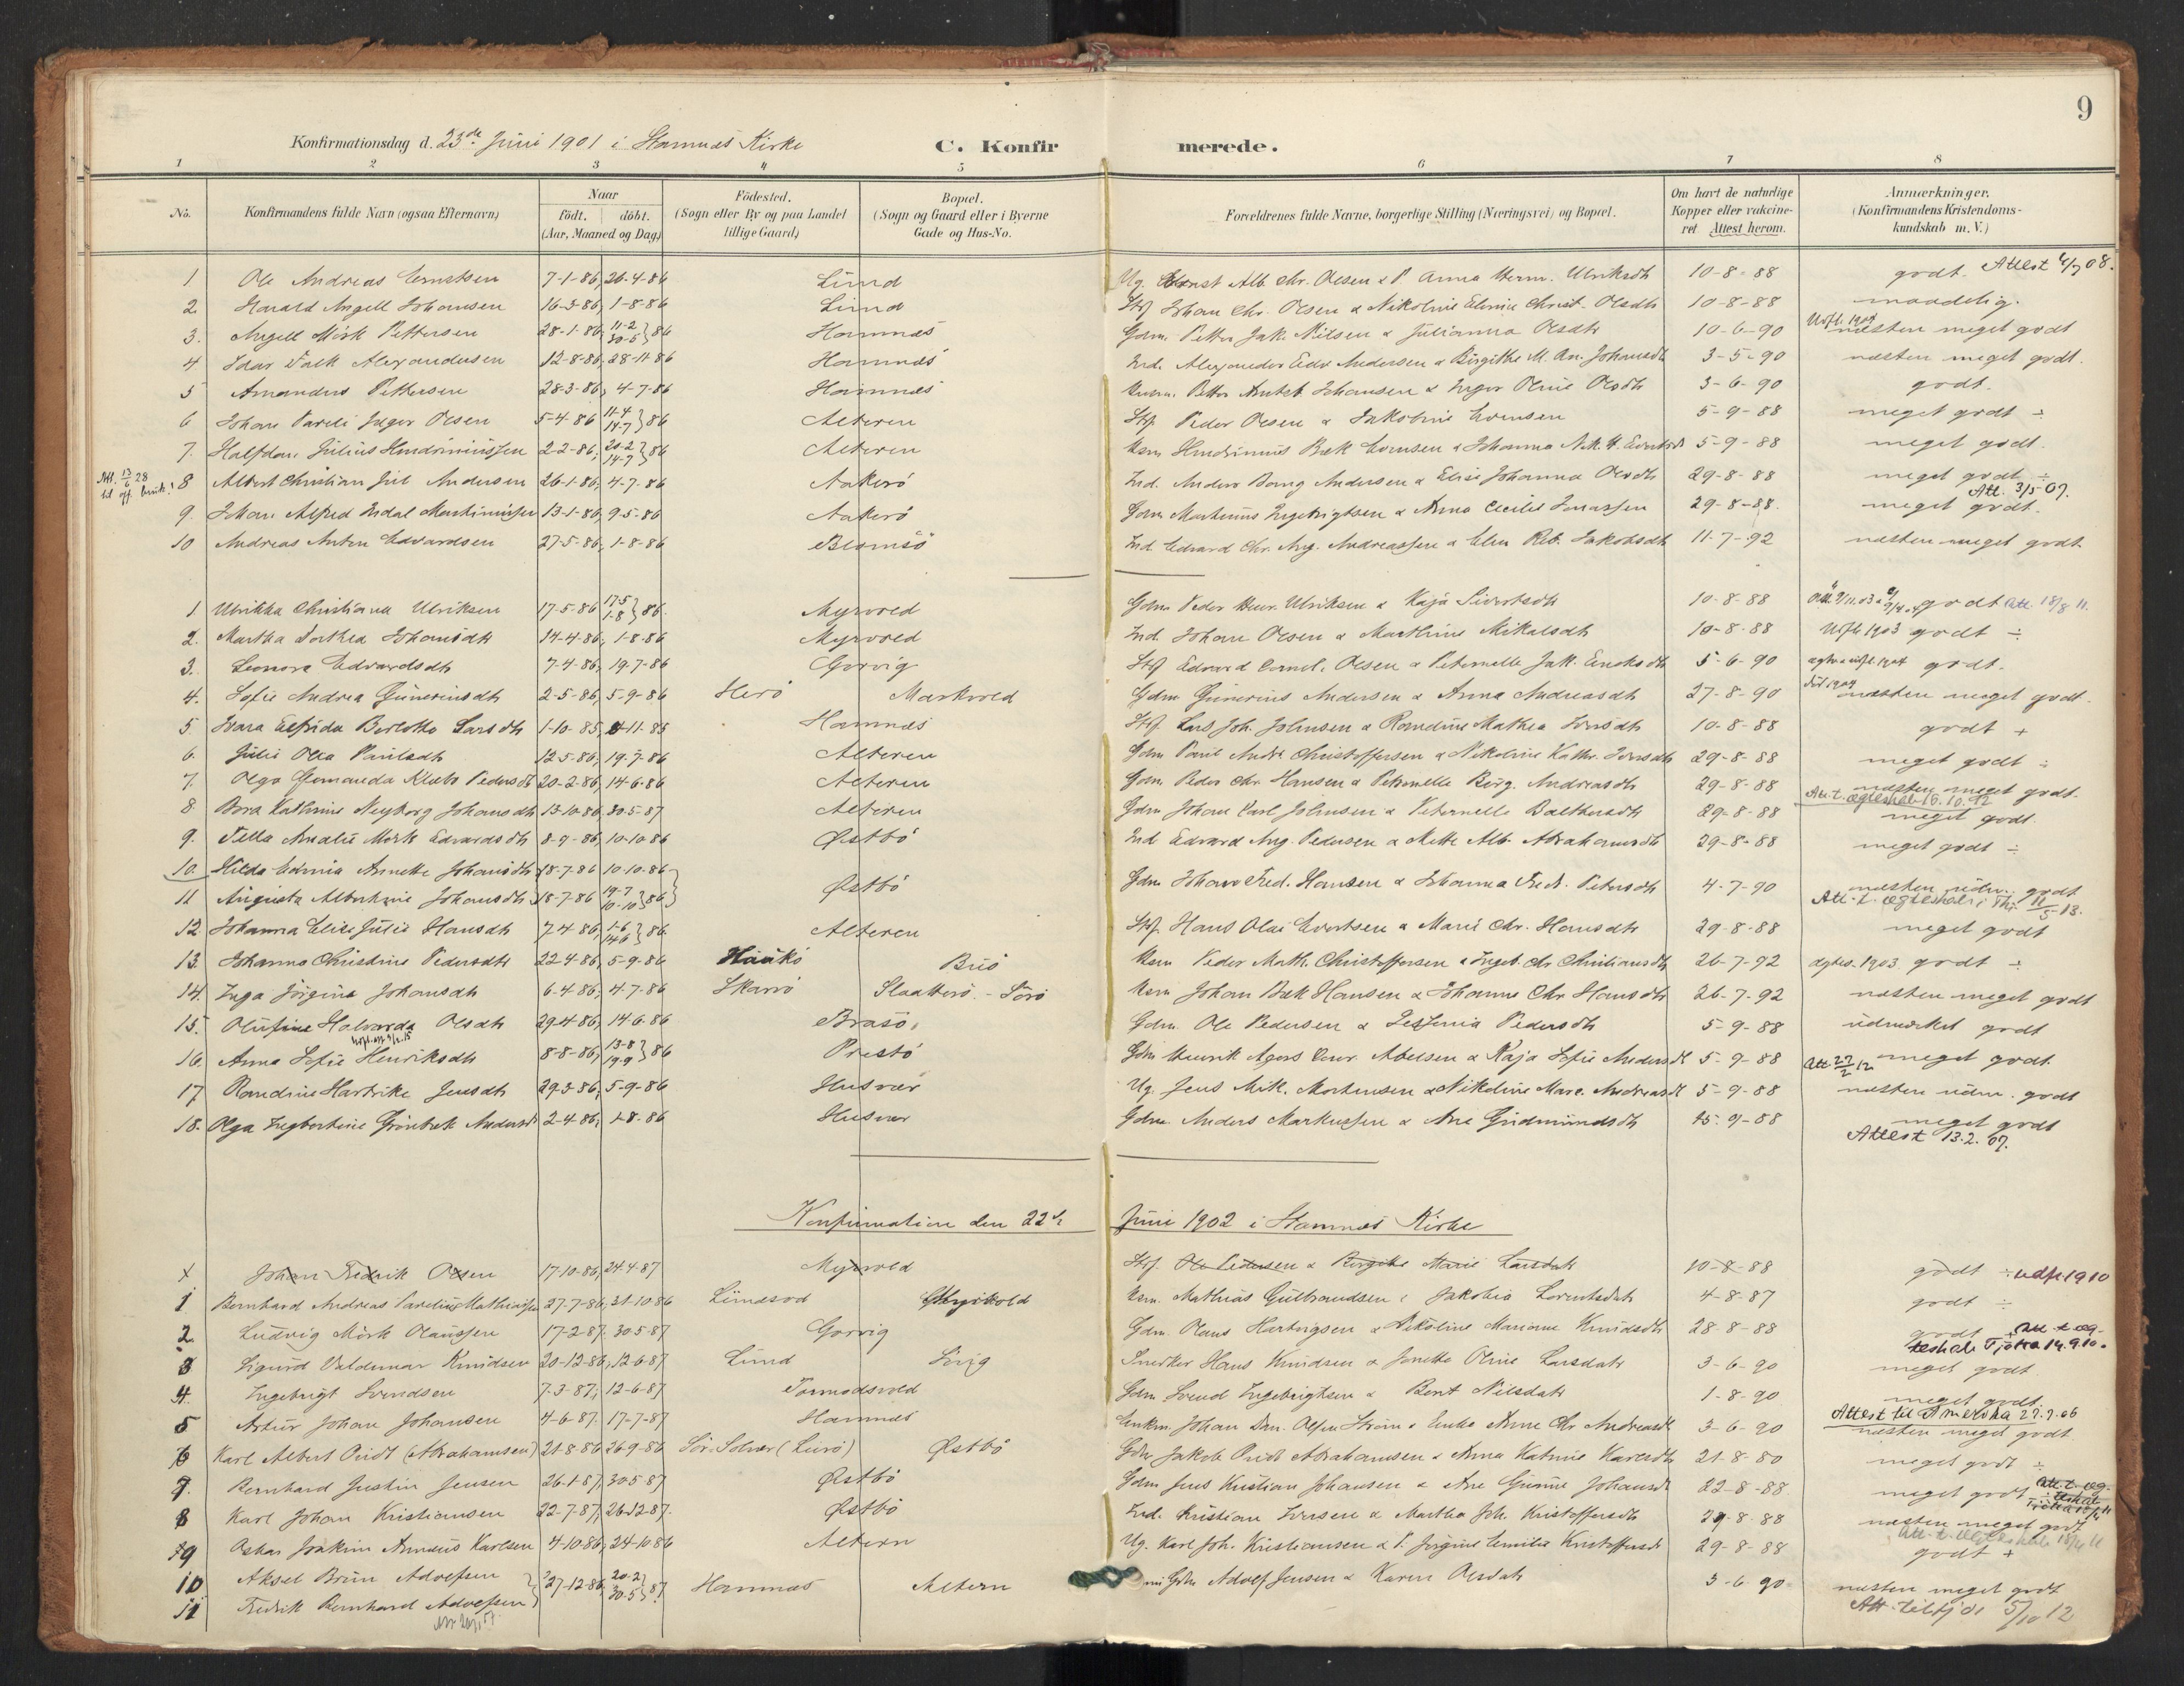 9
Konfirmationsdag d. 23de Juni 1901 i Stamnæs Kirke C. Konfirmerede.
1 2 3 4 5 6 7 8
No. Konfirmandens fulde Navn (ogsaa Efternavn) Naar födt. döbt. (Aar, Maaned og Dag) Födested. (Sogn eller By og paa Landet tillige Gaard) Bopæl. (Sogn og Gaard eller i Byerne Gade og Hus-No. Forældrenes fulde Navne, borgerlige Stilling (Næringsvei) og Bopæl. Om havt de naturlige Kopper eller vakcineret Attest herom. Anmærkninger. (Konfirmandens Kristendomskundskab m. V.)
1 Ole Andreas Ernstsen 7-1-86, 26-4-86 Lund Ug. Ernst Alb. Chr. Olsen & P. Anna Herm. Ulriksdtr 10-8-88 godt. Attest 4/7 08.
2. Harald Angell Johansen 16-3-86, 1-8-86 Lund Johan Chr. Olsen & Nikoline Christ. Olsdtr 10-8-88 maadelig.
3. Angell Mörk Pettersen 28-1-86, 11-2 30-5 } 86 Hamnæs Gdm. Petter Jak. Nilsen & Julianna Olsdtr 10-6-90 Udfl. 1904 næsten meget godt
4 Idar Falk Alexandersen 12-8-86, 28-11-86 Hamnæs Ind. Alexander Edv. Andersen & Birgithe M. An. Johansdt 3-5-90 næsten meget godt.
5 Amandus Pettersen 28-3-86, 4-7-86 Hamnæs Petter Johansen & Inger Oline Olsdtr 3-6-90 godt.
6 Johan Pareli Inger Olsen 5-4-86 11-4 14-7 } 86 Alteren Stf. Peder Olsen & Jakobine Evensen 5-9-88 meget godt ÷
7. Halfdan Julius Hendriniussen 2-2-86, 20-2 14-7 } 86 Alteren Hendrinius Bæk Evensen & Johanna 5-9-88 meget godt.
Att. 13/6 28 til off. bruk! 8 Albert Christian Juel Andersen 26-1-86, 4-7-86 Aakerö Ind. Anders Bang Andersen & Elise Johanna Olsdtr 29-8-88 meget godt ÷
9. Johan Alfred Indal Martiniussen 13-1-86, 9-5-86 Aakerö Gdm. Martinus Ingebrigtsen & Anna Cecilie Jonassen 29-8-88. Att. 3/5 07. meget godt.
10 Andreas Anton Edvardsen 27-5-86, 1-8-86 Blomsö Ind. Edvard Chr. Ang. Andreassen & Elen Reb. Jakobsdt 11-7-92 næsten meget godt
1 Ulrikka Christiana Ulriksen 17-5-86 17-5 1-8 } 86. Myrvold Gdm. Peder Henr. Ulriksen & Kaja Sivertsdtr 10-8-88 godt Att. 18/8 11.
2. Martha Dorthea Johansdtr 14-4-86, 1-8-86 Myrvold Ind. Johan Olsen & Marthine Mikalsdtr 10-8-88 Udfl. 1903 godt ÷
3. Leonora Edvardsdtr 7-4-86, 19-7-86 Gorvig Stf. Edvard Cornel. Olsen & Petornelle Jak. Enoksdtr 5-6-90 godt.
4. Sofie Andrea Gunerusdtr 2-5-86, 5-9-86 Herö Markvold Gdm Gunerius Andersen & Anna Andreasdtr 27-8-90 næsten meget godt.
5. Ivara Elfrida Berthe Larsdtr 1-10-85, 8-11-85 Hamnæs Stf. Lars Joh. Johnsen & Randine Mathea Iversdtr 10-8-88 godt +
6. Julie Olea Paulsdtr 12-5-86, 19-7-86 Alteren Gdm Paul Andr. Christoffersen & Nikoline Kathr. Iversdtr 29-8-88 meget godt ÷
7. Olga Klæbo Pedersdt 20-2-86, 14-6-86 Alteren Gdm. Peder Chr. Hansen & Petornelle Berg. Andreasdtr 29-8-88 næsten meget godt.
8. Bora Kathrine Neyborg Johansdtr 13-10-86, 30-5-87 Alteren Gdm Johan Karl Johnsen & Petornelle Balthersdtr 29-8-88 Att. t. ægteskab 16.10.12 meget godt.
9. Pella Amalie Mörk Edvardsdtr 8-9-86, 10-10-86 Östbö Ind Edvard Ang. Pedersen & Mette Alb. Abrahamsdtr 29-8-88 meget godt ÷
10. Hilda Edvinia Annette Johansdtr 18-7-86 10-10-86
11 Augusta Albertine Johansdtr 18-7-86 19-7 10-10 } 86 Östbö Gdm Johan Fred. Hansen & Johanna Fred. Petersdtr 4-7-90 næsten udm. godt Att. t. ægteskab 11/5 13.
12. Johanna Elise Julie Hansdtr 7-4-86, 1-6 14-6 } 86 Alteren Stf. Hans Olai Evertsen & Marie Chr. Hansdtr 29-8-88 meget godt
13. Johanna Christine Pedersdtr 22-4-86, 5-9-86 Haukö Buö Peder Math. Christoffersen & Ingeb. Chr. Christiansdtr 26-7-92 ægtes. 1903. godt ÷
14. Inga Jörgine Johansdtr 6-4-86, 4-7-86 Skarvö Slaatterö - Sörö Johan Bæk Hansen & Johanne Chr. Hansdtr 26-7-92 næsten meget godt
15. Olufine Halvarda Olsdtr 29-4-86, 14-6-86 Brasö, Gdm. Ole Pedersen & Zefania Pedersdtr 5-9-88 udmærket godt
16. Anna Sofie Henriksdtr 8-8-86, 13-8 19-9 } 86 Prestö Gdm Henrik Abelsen & Kaja Sofie Andersdt 5-9-88 Att 27/2 12 meget godt.
17 Randine Hartvikke Jensdtr 29-3-86, 5-9-86 Husvær Ug. Jens Mik. Mortensen & Nikoline Marc. Andreasdt 5-9-88 næsten udm. godt
18. Olga Ingbertine Grönbæk Andersdt 2-4-86, 1-8-86 Husvær Gdm. Anders Markussen & Ane Gudmundsdtr 15-9-88 meget godt Attest 13.2.07.
Konfirmation den 22de Juni 1902 i Stamnæs Kirke
x Johan Fredrik Olsen 17-10-86, 24-4-87 Myrvold Stf. Ole Pedersen & Birgithe Marie Larsdatr 10-8-88 godt ÷ udfl 1910
1 Bernhard Andreas Parelius Mathiassen 27-7-86, 31-10-86 Mathias Gulbrandsen & Jakobea Lorentsdatr 4-8-87 godt ÷
2. Ludvig Mörk Olaussen 17-2-87, 30-5-87 Gorvig Gdm. Olaus Hartvigsen & Nikoline Mariane Knudsdtr 28-8-88 godt + Att. t. ægteskab Tjötta 14.9.10.
3 Sigurd Valdemar Knudsen 20-12-86, 12-6-87 Lund Sörig Snedker Hans Knudsen & Jonetta Oline Larsdatr 3-6-90 meget godt
4. Ingebrigt Svendsen 7-3-87, 12-6-87 Tormodsvold Gdm Svend Ingebrigtsen & Berit Nilsdatr 1-8-90 meget godt
5 Artur Johan Johansen 4-6-87. 17-7-87 Hamnæs Enkm. Johan Dan. Olsen Ström & Enke Anne Chr. Andreasdt 3-6-90 Attest til Amerika 27.7.06 næsten meget godt.
6 Karl Albert Quidt (Abrahamsen) 21-8-86 26-9-86 Sör-Solvær (Lurö) Östbö Gdm Jakob Quidt Abrahamsen & Anna Katrine Karlsdtr 21-8-80 meget godt ÷
7. Bernhard Justin Jensen 26-1-87, 30-5-87 Östbö Gdm Jens Kristian Johansen & Ane Gurine Johansdt 22-8-88 meget godt Att. t. ægteskab Tjötta
8 Karl Johan Kristiansen 22-7-87, 26-12-87. Östbö Ind. Kristian Iversen & Martha Joh. Kristoffersdtr 29-8-88 næsten meget godt
9 Oskar Joakim Amdeus Karlsen 4-10-86, 24-10-86 Altern Ug. Karl Joh. Kristiansen & P. Jörgine Emilie Kristoffersdt 29-8-88 godt +
10 Aksel Brun Adolfsen } 27-12-86, 20-2 30-5 } 87 Hamnæs Altern Gdm Adolf Jensen & Karen Olsdatr 3-6-90 næsten meget godt
11 Fredrik Bernhard Adolfsen Att. 5/10 12